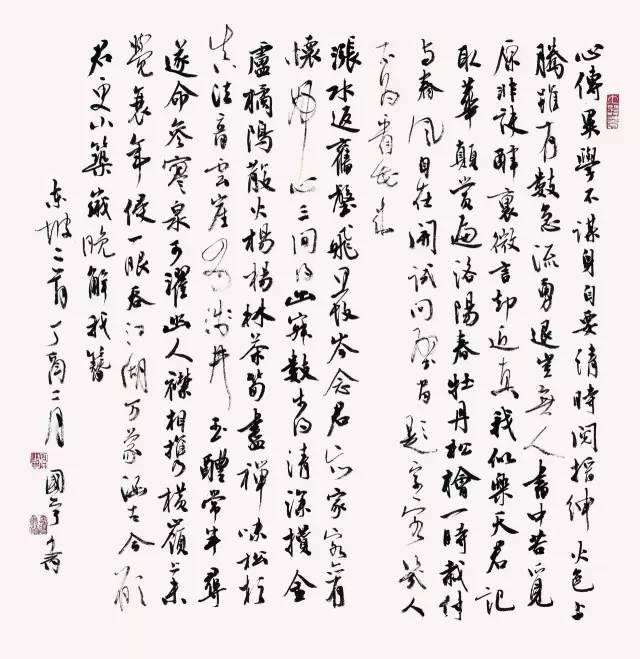 心傳異學不謀身自要清時閱搢紳火色上
騰雖有數急流勇退豈無人書中苦覓
原非訣醉裏微言却近真我似樂天君記
取華顛賞遍洛陽春牡丹松檜一時栽付
與春風自在開試問壁間題字客幾人
不為看花來
漲水返舊壑飛雲思故岑念君忘家客亦有
懷歸心三間得幽寂數步藏清深攢金
盧橘隝散火楊梅林茶筍盡禪味松杉
真法音雲崖有淺井玉醴常半尋
遂命參寥泉可濯幽人襟相攜橫嶺上未
覺衰年侵一眼吞江湖萬象涵古今願
君更小築歲晚解我簪
東坡二首丁酉二月國亨書